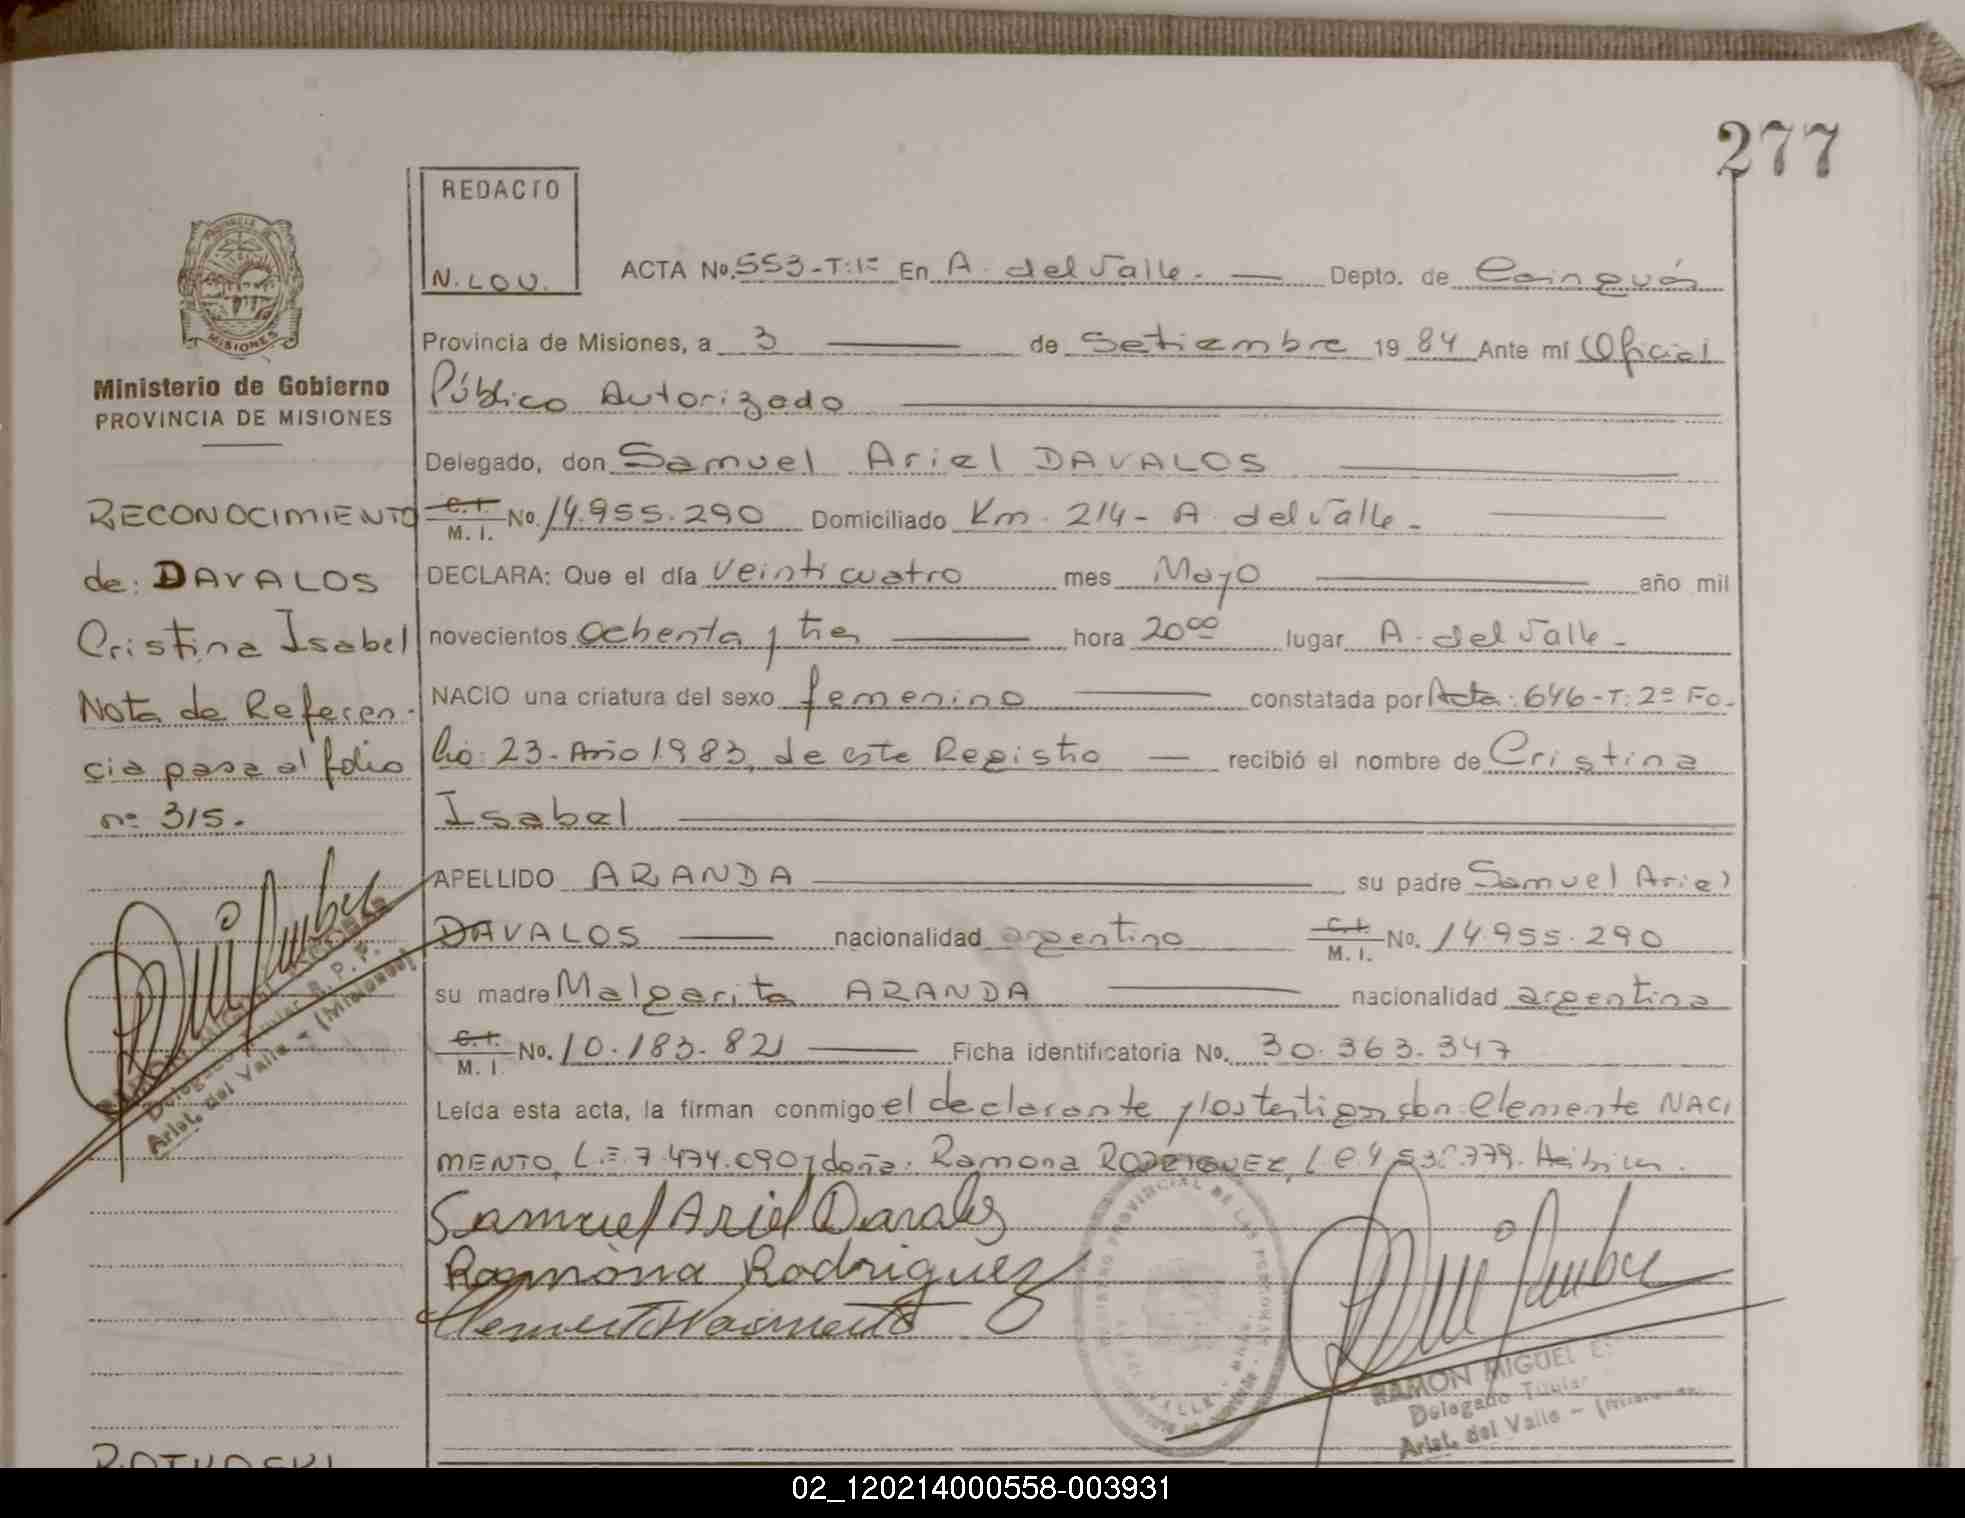 277
REDACTO
N. LOU.
ACTA No. 553-T:1º En A. del Valle.- Depto. de Cainguás
Provincia de Misiones, a 3 de Setiembre 19 84 Ante mí Oficial
Público Autorizado
Delegado, don Samuel Ariel DAVALOS
C. I. M. I. No. 14.955.290 Domiciliado Km. 214- A. del Valle.
DECLARA: Que el día veinticuatro mes Mayo año mil
novecientos ochenta y tres hora 20ºº lugar A. del Valle.-
NACIO una criatura del sexo femenino constatada por Acta: 646-T: 2º Fo-
lio: 23- Año 1983, de este Registro recibió el nombre de Cristina
Isabel
APELLIDO ARANDA su padre Samuel Ariel
DAVALOS nacionalidad argentino C. I. M. I. No. 14.955.290
su madre Malgarita ARANDA nacionalidad argentina
C. I. M. I. No. 10.183.821 Ficha identificatoria No. 30.363.347
Leída esta acta, la firman conmigo el declarante y los testigos don: Clemente NACI
MENTO, L.E. 7.474.090 y doña: Ramona RODRIGUEZ, Hábiles.
Samuel Ariel Davalos
Ramona Rodriguez
Clemente Nacimento
REGISTRO PROVINCIAL DE LAS PERSONAS
RAMON MIGUEL
Delegado Titular
Arist. del Valle - (Misiones)
PROVINCIA DE
MISIONES
Ministerio de Gobierno
PROVINCIA DE MISIONES
RECONOCIMIENTO
de: DAVALOS
Cristina Isabel
Nota de Referen-
cia pasa al folio
nº 315.
RAMON MIGUEL
Delegado Titular R. P. P.
Arist. del Valle - (Misiones)
02_120214000558-003931